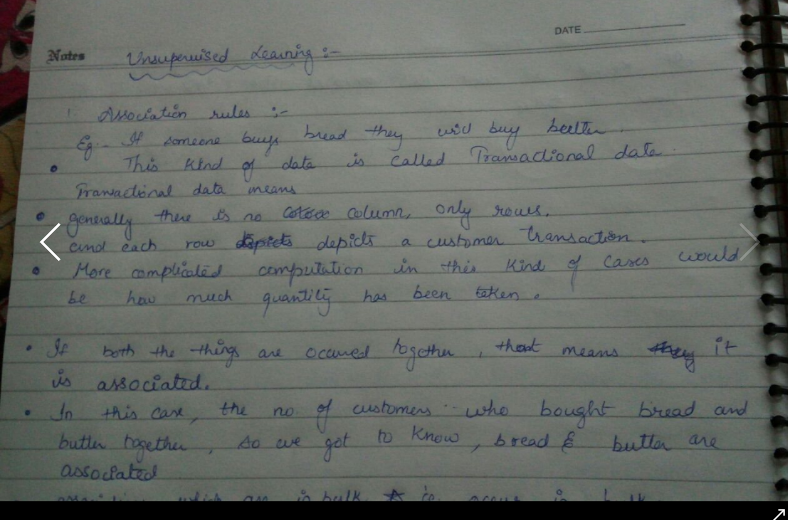 DATE
Notes Unsupervised Learning :-
Association rules :-
Eg:- If someone buys bread they will buy butter.
• This kind of data is called Transactional data.
Transactional data means
• generally there is no column, only rows.
and each row depicts a customer transaction.
• More complicated computation in this kind of cases would
be how much quantity has been taken.
• If both the things are occured together, that means it
is associated.
• In this case, the no of customers who bought bread and
butter together, so we got to know, bread & butter are
associated
which are in bulk